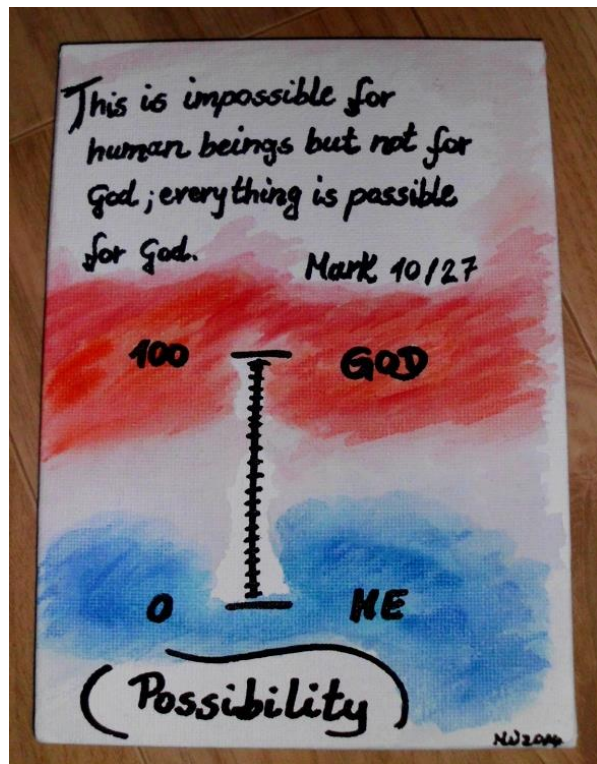 This is impossible for
human beings but not for
God; everything is possible
for God.
Mark 10/27
100 GOD
0 ME
(Possibility)
NW2014